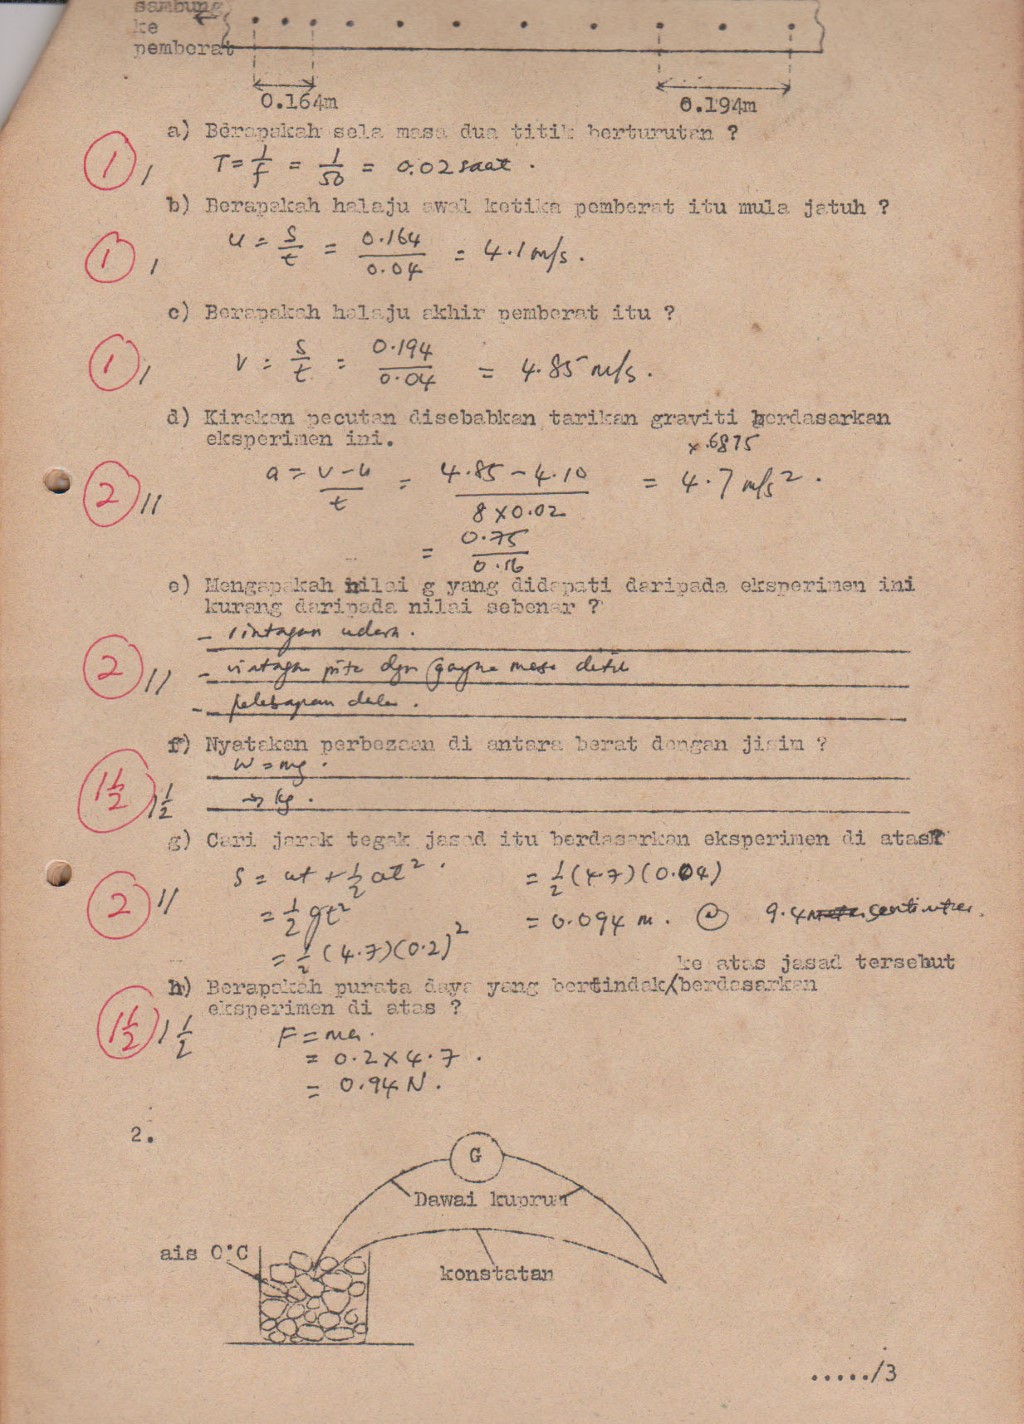 sambung
ke
pemberat
0.164m 0.194m
a) Berapakah sela masa dua titik berturutan ?
1 , T = 1/f = 1/50 = 0.02 saat .
b) Berapakah halaju awal ketika pemberat itu mula jatuh ?
1 , u = s/t = 0.164/0.04 = 4.1 m/s .
c) Berapakah halaju akhir pemberat itu ?
1 , v = s/t = 0.194/0.04 = 4.85 m/s .
d) Kirakan pecutan disebabkan tarikan graviti berdasarkan
eksperimen ini.
.6875
2 // a = v-u/t = 4.85 - 4.10/8 x 0.02 = 4.7 m/s² .
= 0.75/0.16
e) Mengapakah nilai g yang didapati daripada eksperimen ini
kurang daripada nilai sebenar ?
- rintangan udara .
2 // - rintangan pita dgn masa detik
-
f) Nyatakan perbezaan di antara berat dengan jisim ?
W = mg .
1½ 1½ → kg .
g) Cari jarak tegak jasad itu berdasarkan eksperimen di atas?
S = ut + ½ at² . = ½ (4.7)(0.04)
2 // = ½ gt² = 0.094 m . @ 9.4 centimeter.
= ½ (4.7)(0.2)²
ke atas jasad tersebut
h) Berapakah purata daya yang bertindak/berdasarkan
eksperimen di atas ?
1½ 1½ F = ma .
= 0.2 x 4.7 .
= 0.94 N .
2.
G
Dawai kuprum
ais 0°C
konstatan
...../3